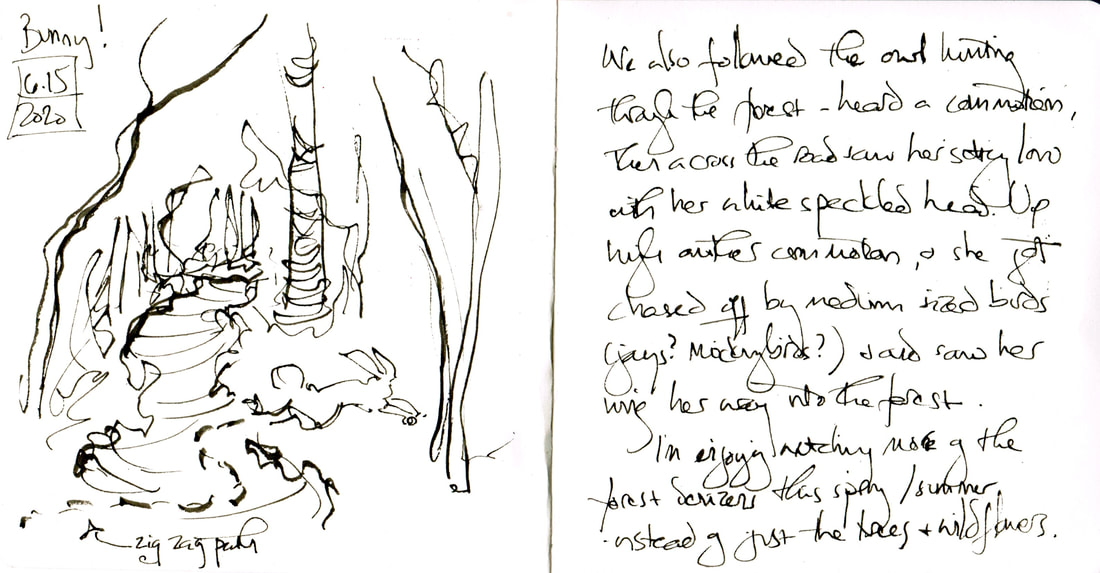 Bunny!
6.15
2020
zig zag path
We also followed the owl hunting
through the forest - heard a commotion,
then across the road saw her sitting low
with her white speckled head. Up
high another commotion, & she got
chased off by medium sized birds
(jays? Mockingbirds?) saw her
wing her way into the forest.
I'm enjoying watching more of the
forest denizens this spring/summer,
instead of just the trees + wildflowers.